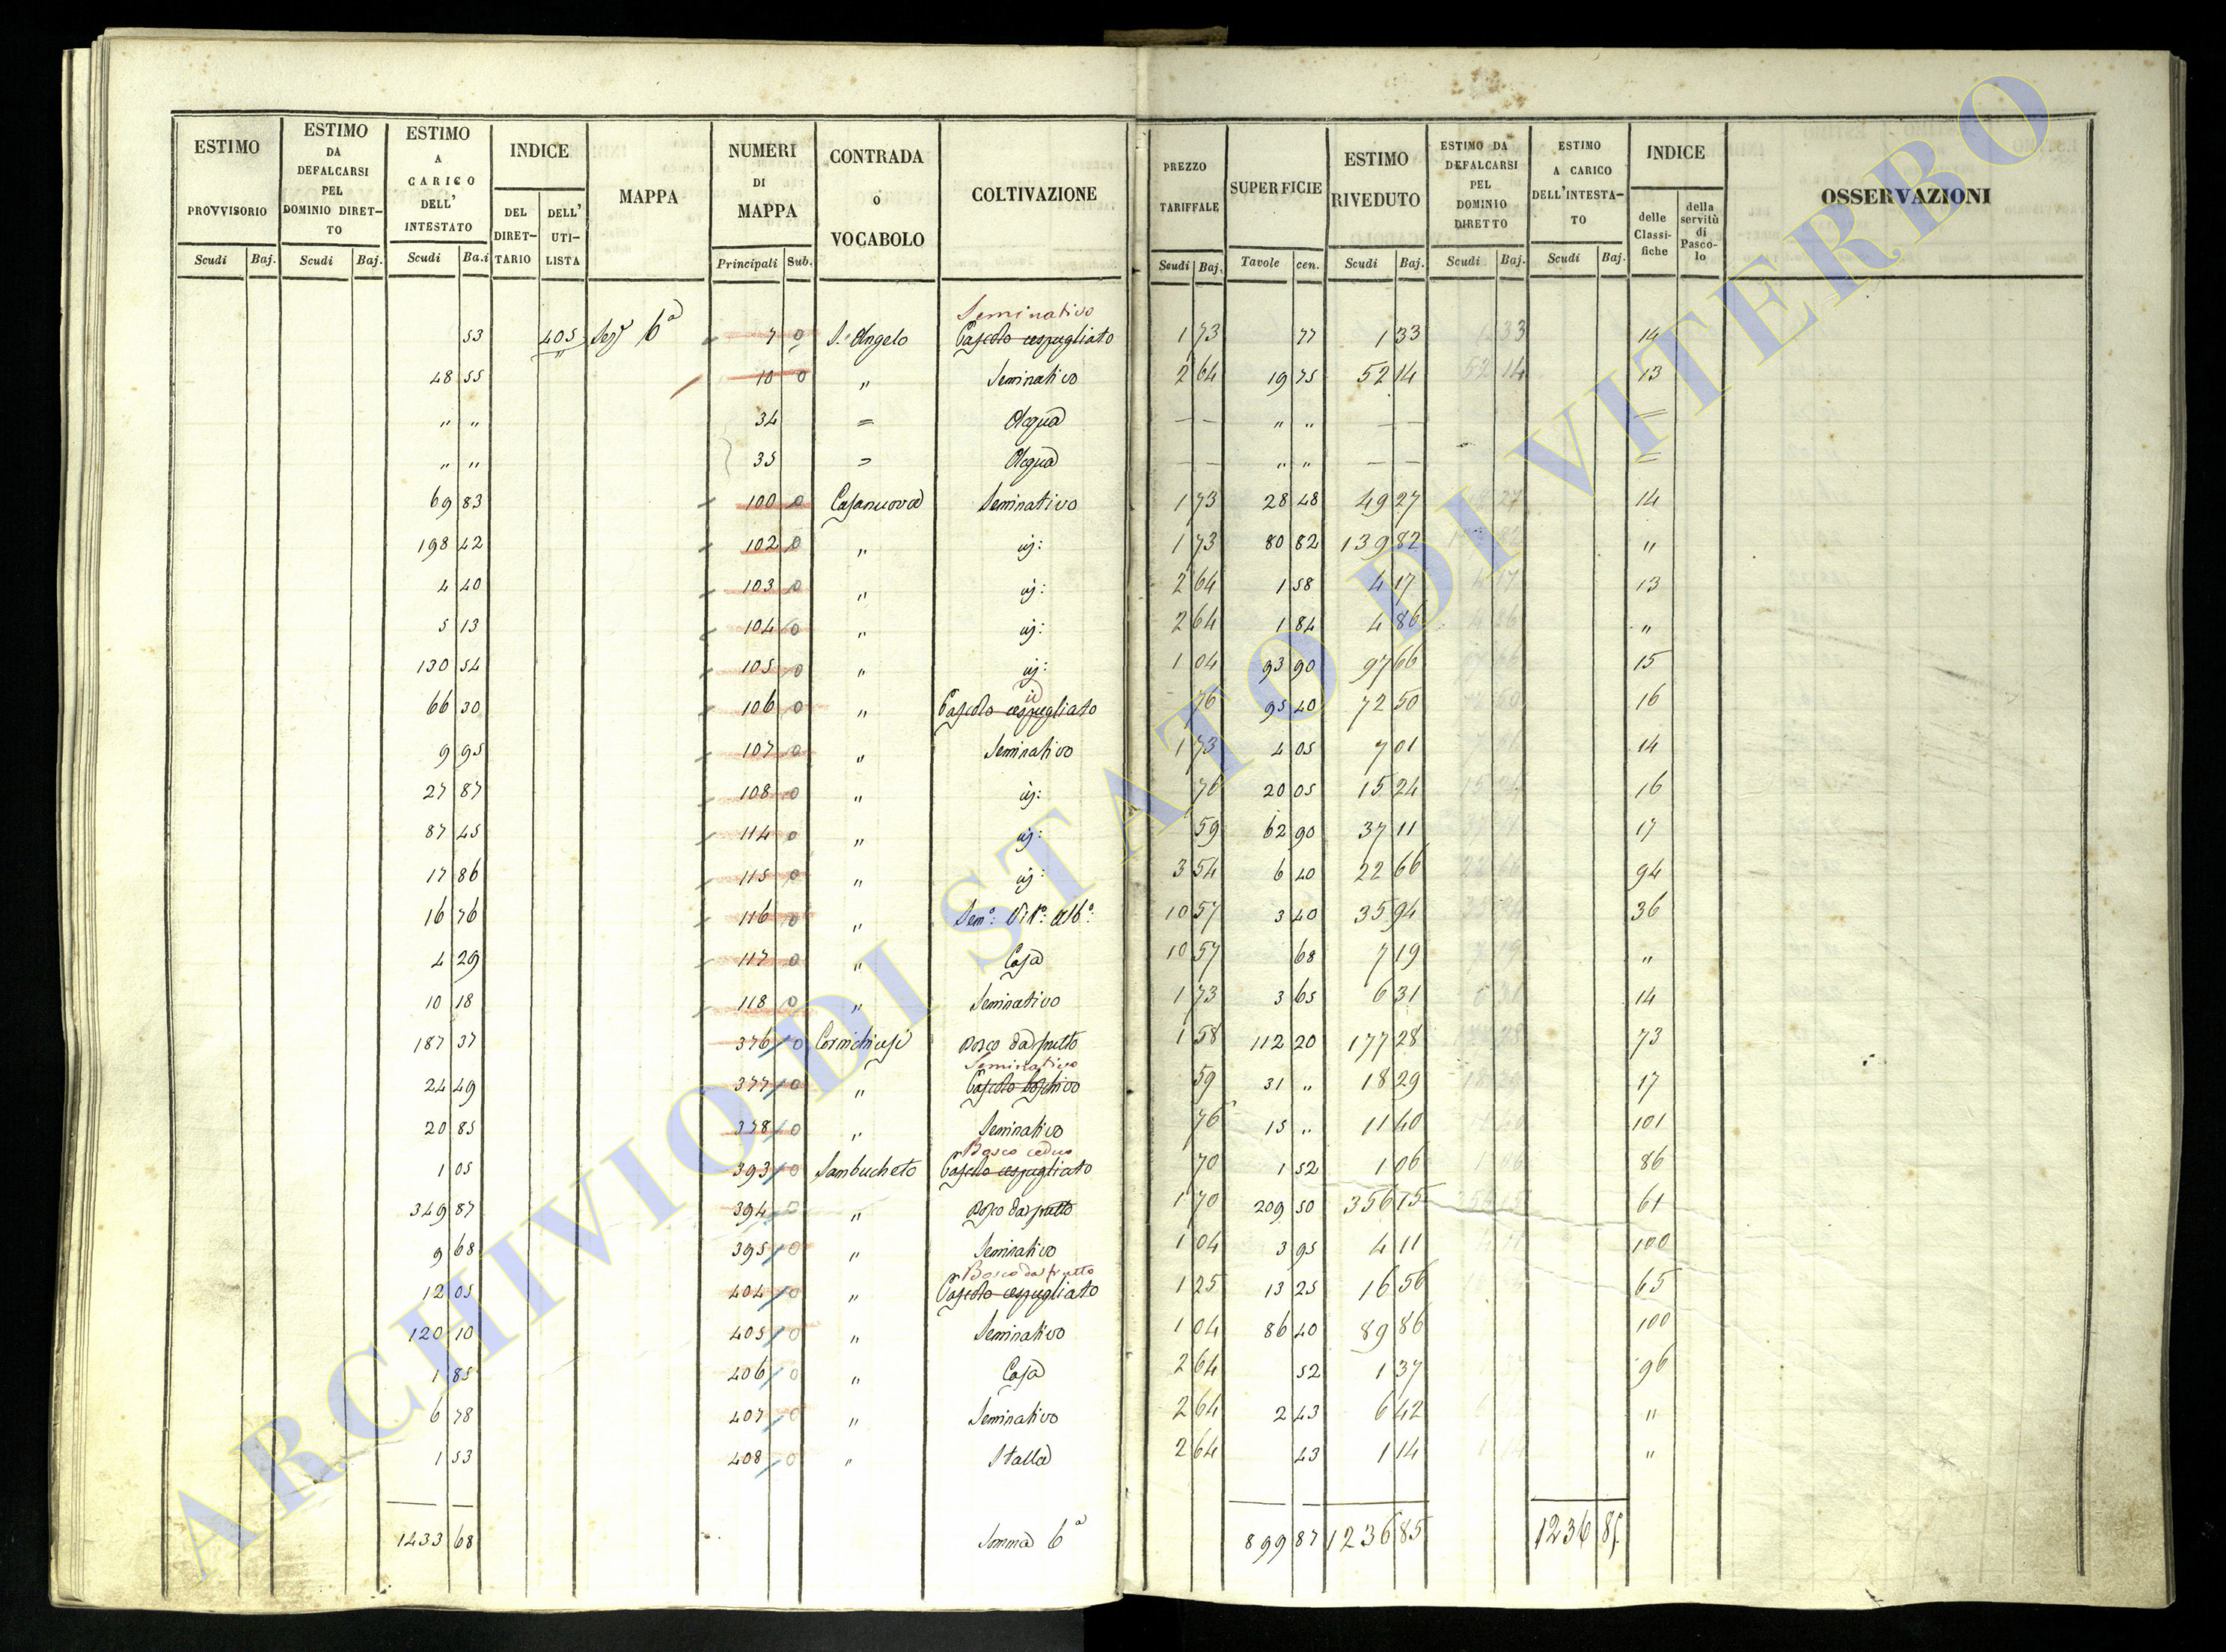 ESTIMO PROVVISORIO Scudi Baj.
ESTIMO DA DEFALCARSI PEL DOMINIO DIRETTO Scudi Baj.
ESTIMO A CARICO DELL' INTESTATO Scudi Ba.i
INDICE DEL DIRETTARIO DELL' UTILISTA
MAPPA
NUMERI DI MAPPA Principali Sub.
CONTRADA o VOCABOLO
COLTIVAZIONE
PREZZO TARIFFALE Scudi Baj.
SUPERFICIE Tavole cen.
ESTIMO RIVEDUTO Scudi Baj.
ESTIMO DA DEFALCARSI PEL DOMINIO DIRETTO Scudi Baj.
ESTIMO A CARICO DELL'INTESTATO Scudi Baj.
INDICE delle Classifiche della servitù di Pascolo
OSSERVAZIONI
Seminativo
53 405 6a 7 0 S. Angelo Pascolo cespugliato 1 73 77 1 33 14
48 55 10 0 " Seminativo 2 64 19 75 52 14 13
" " 34 = Acqua — — " " — — =
" " 35 = Acqua — — " " — — =
69 83 100 0 Casanuova Seminativo 1 73 28 48 49 27 14
198 42 102 0 " 1 73 80 82 139 82 "
4 40 103 0 " 2 64 1 58 4 17 13
5 13 104 0 " 2 64 1 84 4 86 "
130 54 105 0 " 1 04 93 90 97 66 15
66 30 106 0 " Pascolo cespugliato 76 95 40 72 50 16
9 95 107 0 " Seminativo 1 73 4 05 7 01 14
27 87 108 0 " 76 20 05 15 24 16
87 45 114 0 " 59 62 90 37 11 17
17 86 115 0 " 3 54 6 40 22 66 94
16 76 116 0 " Sem.o Vit.o Alb.o 10 57 3 40 35 94 36
4 29 117 0 " Casa 10 57 68 7 19 "
10 18 118 0 " Seminativo 1 73 3 65 6 31 14
187 37 376 0 Bosco da frutto 1 58 112 20 177 28 73
Seminativo
24 49 377 0 " Pascolo boschivo 59 31 " 18 29 17
20 85 378 0 " Seminativo 76 15 " 11 40 101
Bosco ceduo
1 05 393 0 Sambucheto Pascolo cespugliato 70 1 52 1 06 86
349 87 394 0 " Bosco da frutto 1 70 209 50 356 15 61
9 68 395 0 " Seminativo 1 04 3 95 4 11 100
Bosco da frutto
12 05 404 0 " Pascolo cespugliato 1 25 13 25 16 56 65
120 10 405 0 " Seminativo 1 04 86 40 89 86 100
1 85 406 0 " Casa 2 64 52 1 37 96
6 78 407 0 " Seminativo 2 64 2 43 6 42 "
1 53 408 0 " Stalla 2 64 43 1 14 "
1433 68 Somma 6a 899 87 1236 85 1236 85
ARCHIVIO DI STATO DI VITERBO